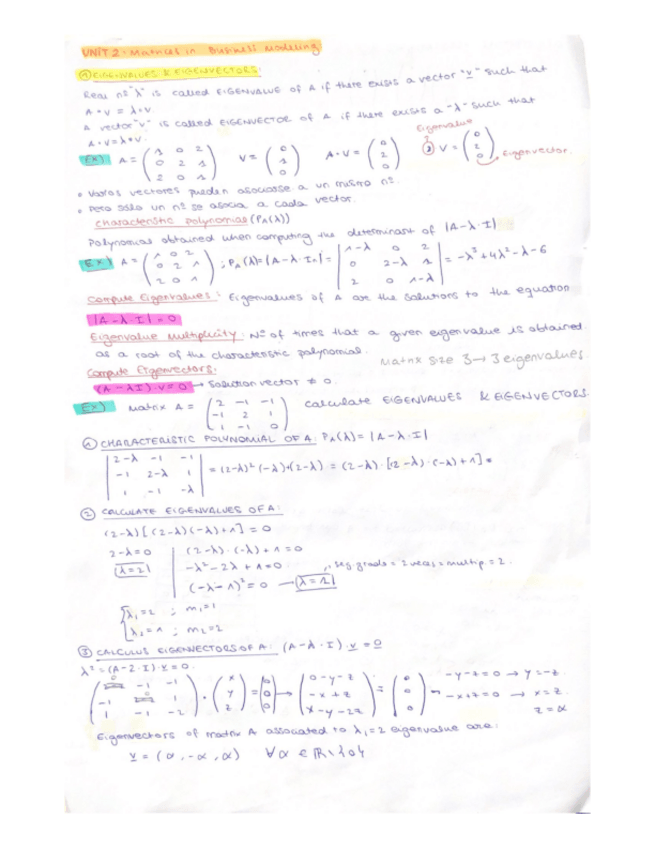 UNIT 2 - Matrices in Business Modeling
① EIGENVALUES & EIGENVECTORS:
Real nº "λ" is called EIGENVALUE of A if there exists a vector "v" such that
A·v = λ·v.
A vector "v" is called EIGENVECTOR of A if there exists a "λ" such that
A·v=λ·v.
Eigenvalue
Ex) A = (1 0 2 / 0 2 1 / 2 0 1) V = (0 / 1 / 0) A·V = (0 / 2 / 0) V = (0 / 2 / 0) Eigenvector.
• Varios vectores pueden asociarse a un mismo nº.
• Pero sólo un nº se asocia a cada vector.
Characteristic Polynomial (PA(λ))
Polynomial obtained when computing the determinant of |A-λ·I|
Ex) A = (1 0 2 / 0 2 1 / 2 0 1) ; PA(λ)=|A-λ·In| = |1-λ 0 2 / 0 2-λ 1 / 2 0 1-λ| = -λ³+4λ²-λ-6
Compute Eigenvalues: Eigenvalues of A are the solutions to the equation
|A-λ·I| = 0
Eigenvalue Multiplicity: Nº of times that a given eigenvalue is obtained
as a root of the characteristic polynomial. Matrix size 3 → 3 eigenvalues
Compute Eigenvectors:
(A-λI)·v=0 → Solution vector ≠ 0.
Ex) Matrix A = (2 -1 -1 / -1 2 1 / 1 -1 0) calculate EIGENVALUES & EIGENVECTORS.
① CHARACTERISTIC POLYNOMIAL OF A: PA(λ)=|A-λ·I|
|2-λ -1 -1 / -1 2-λ 1 / 1 -1 -λ| = (2-λ)²(-λ)+(2-λ) = (2-λ)·[(2-λ)·(-λ)+1] =
② CALCULATE EIGENVALUES OF A:
(2-λ)[(2-λ)(-λ)+1] = 0
2-λ=0 | (2-λ)·(-λ)+1=0
λ=2 | -λ²-2λ+1=0 seg. grado = 2 veces = multip. = 2.
(-λ-1)²=0 → λ=1
λ1=2 ; m1=1
λ2=1 ; m2=2
③ CALCULUS EIGENVECTORS OF A: (A-λ·I)·v=0
λ²=(A-2·I)·v=0.
(0 -1 -1 / -1 0 1 / 1 -1 -2) · (x / y / z) = (0 / 0 / 0) → (0-y-z / -x+z / x-y-2z) = (0 / 0 / 0) -y-z=0 → y=-z.
-x+z=0 → x=z.
z=α
Eigenvectors of matrix A associated to λ1=2 eigenvalue are:
v = (α, -α, α) ∀α ∈ ℝ\{0}